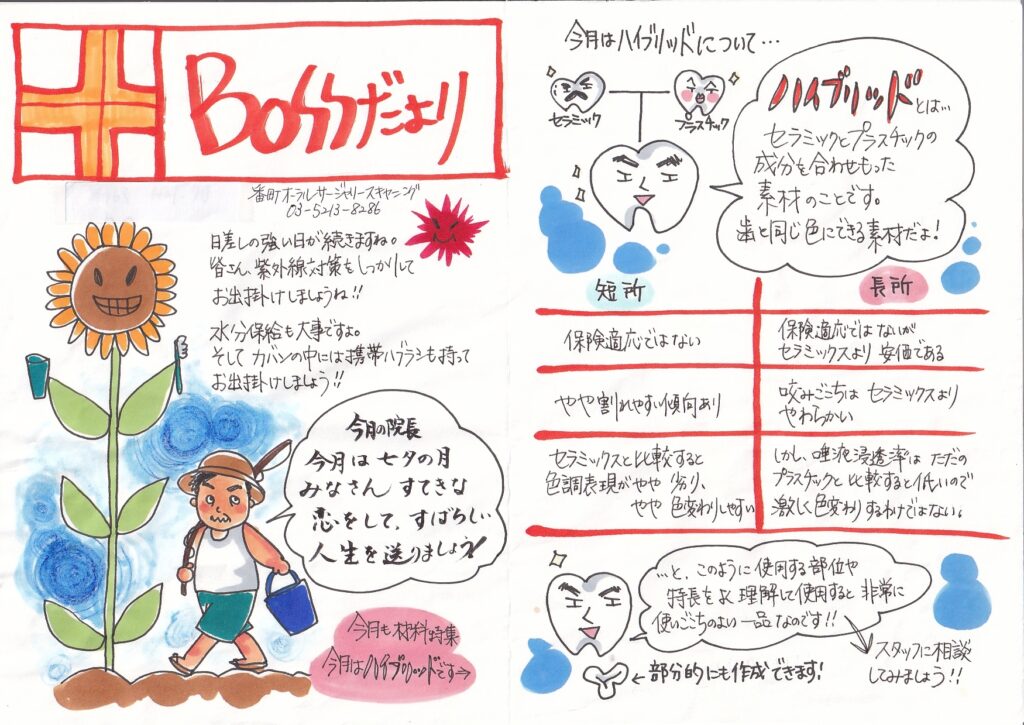 BOSSだより
番町オーラルサージャリースキャニング
03-5213-8286
日差しの強い日が続きますね。
皆さん、紫外線対策もしっかりして
お出掛けしましょうね!!
水分保給も大事ですよ。
そしてカバンの中には携帯ハブラシも持って
お出掛けしましょう!!
今月の院長
今月は七夕の月
みなさんすてきな
恋をして、すばらしい
人生を送りましょう!
今月も材料特集
今月はハイブリッドです→
今月はハイブリッドについて…
セラミック
プラスチック
ハイブリッドとは…
セラミックとプラスチックの
成分を合わせもった
素材のことです。
歯と同じ色にできる素材だよ!
短所
長所
保険適応ではない
保険適応ではないが
セラミックスより安価である
やや割れやすい傾向あり
咬みごこちはセラミックスより
やわらかい
セラミックスと比較すると
色調表現がやや劣り、
やや色変わりしやすい
しかし、唾液浸透率はただの
プラスチックと比較すると低いので
激しく色変わりするわけではない。
…と、このように使用する部位や
特長をよく理解して使用すると非常に
使いごこちのよい一品なのです!!
スタッフに相談
してみましょう!!
←部分的にも作成できます!